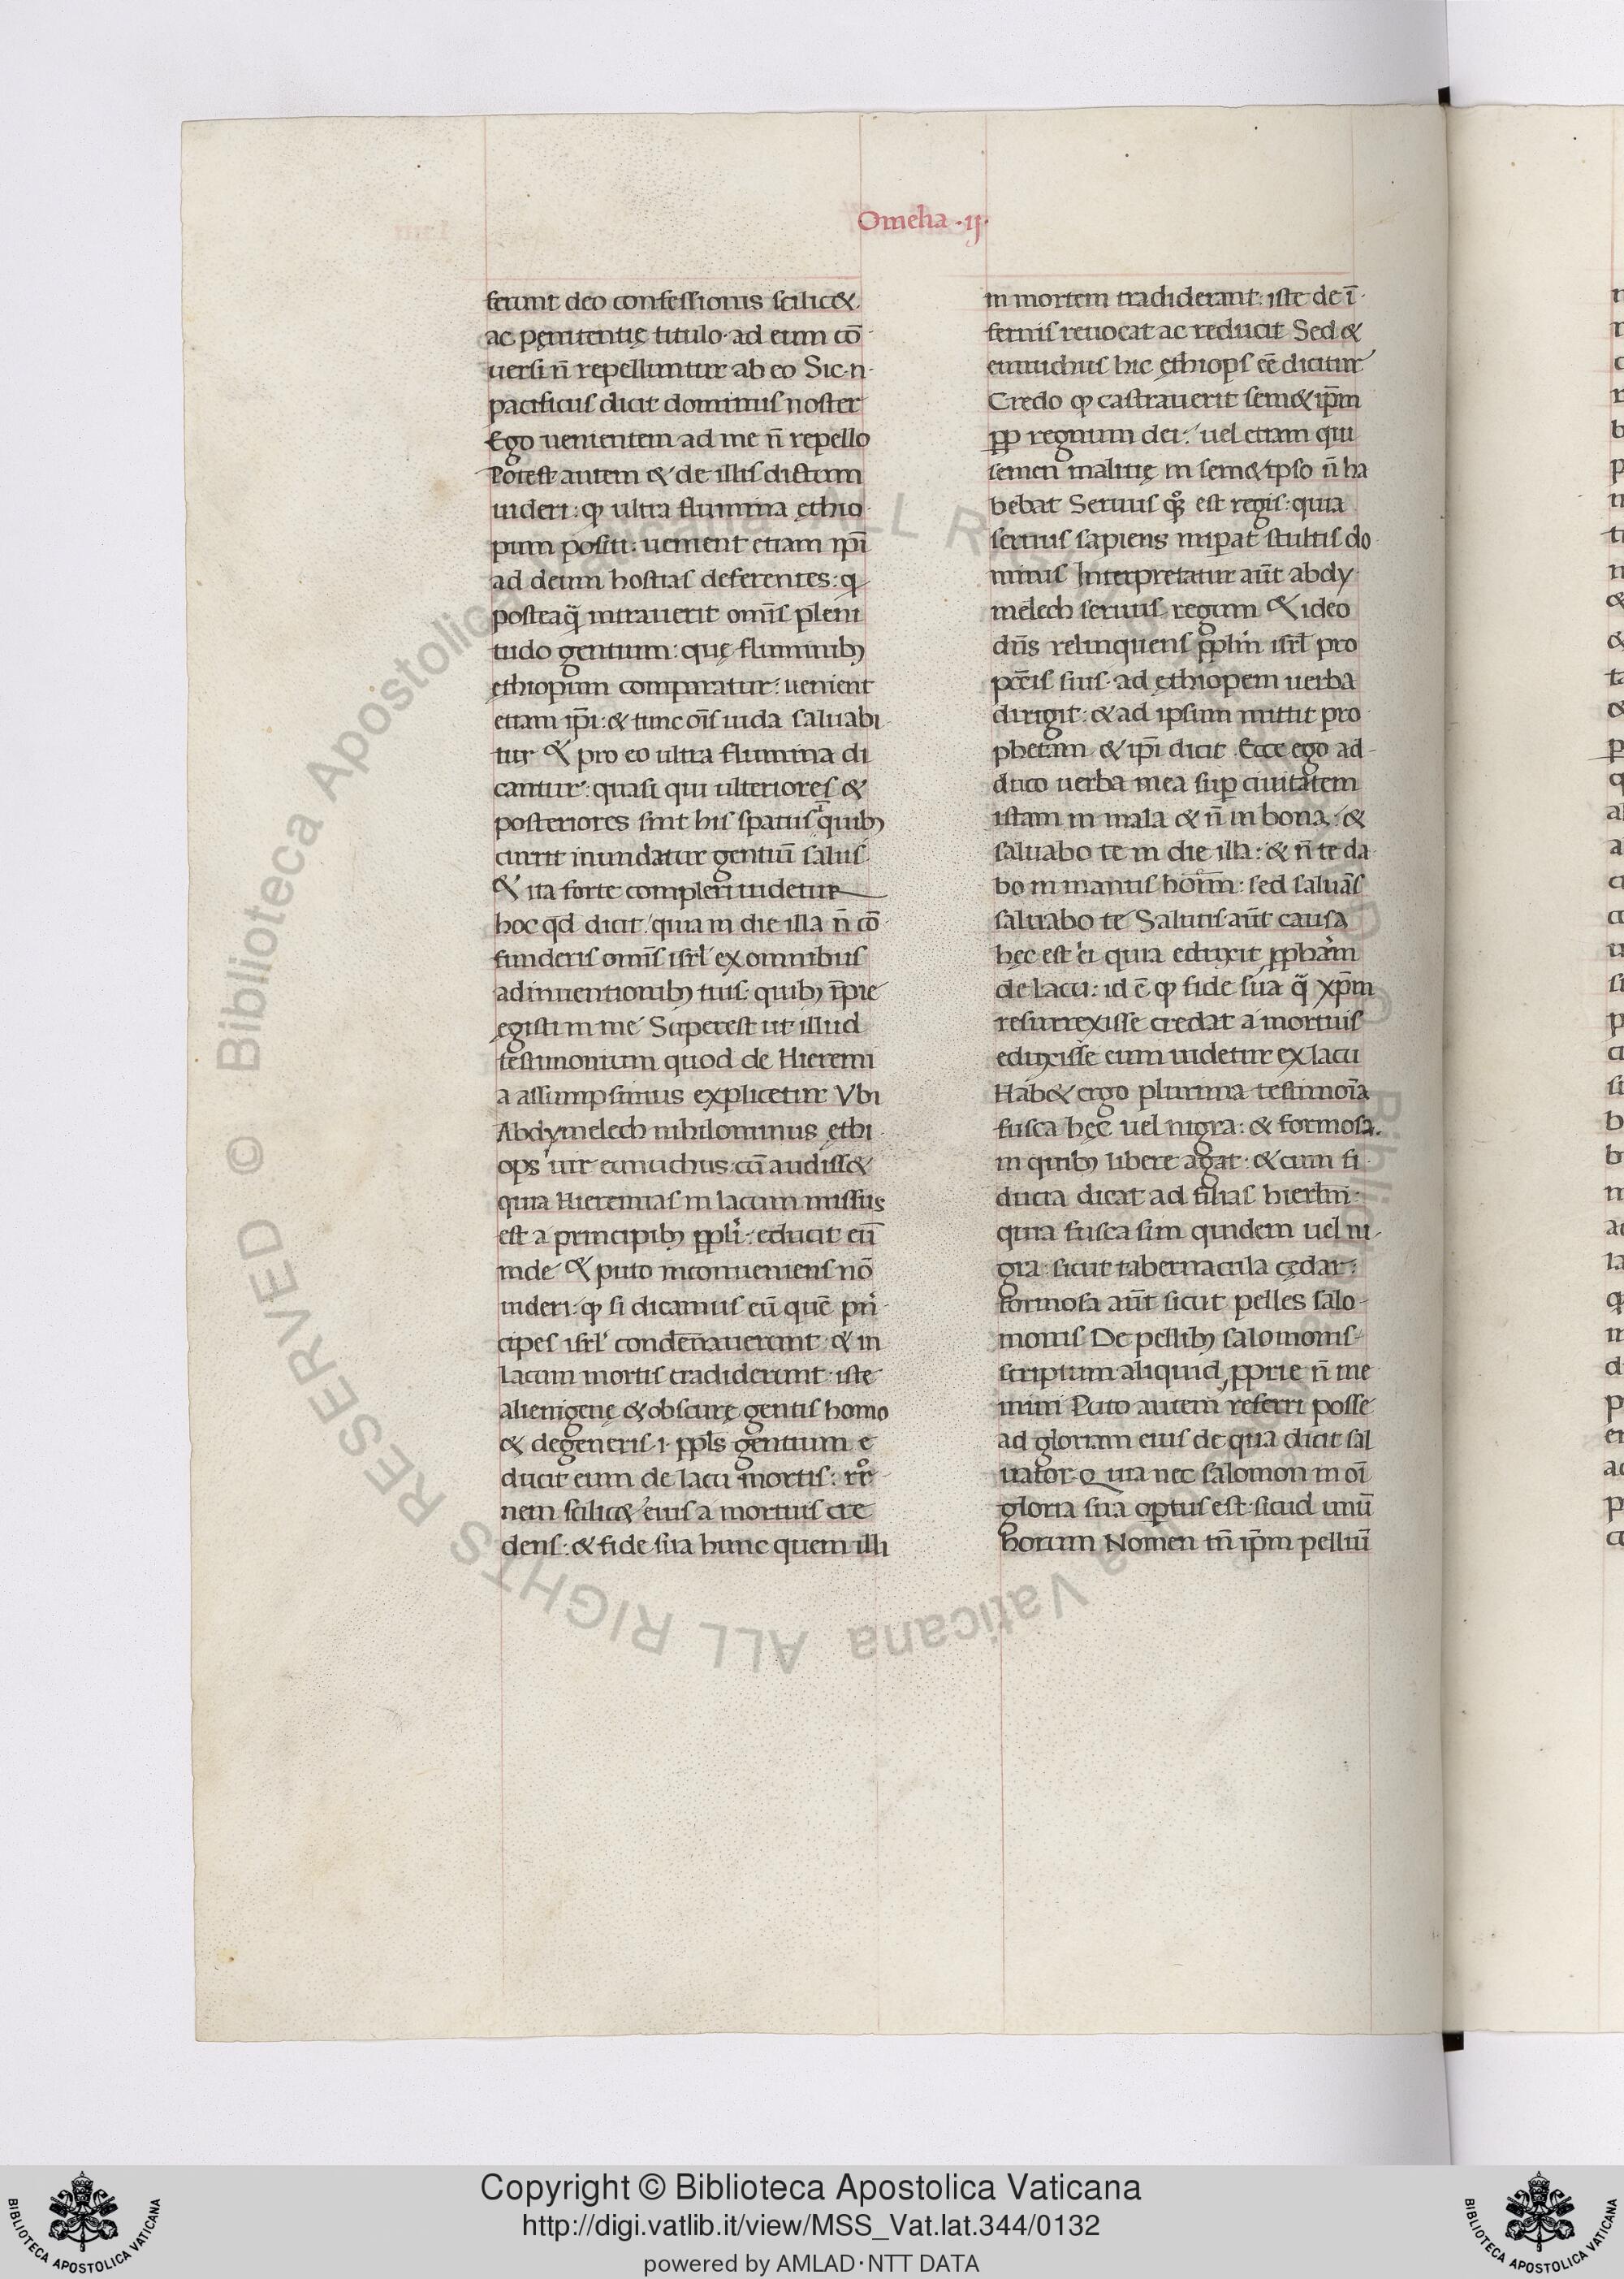 Omelia ·ij·
ferunt deo confessionis scilic&
ac pęnitentię titulo· ad eum cō
uersi n̄ repelluntur ab eo Sic·n·
pacificus dicit dominus noster
Ego uenientem ad me n̄ repello
Potest autem & de illis dictum
uideri: ꝙ ultra flumina ęthio
pum positi: uenient etiam ip̄i
ad deum hostias deferentes: q
posteaq̃ intrauerit omīs pleni
tudo gentium: quę fluminibꝫ
ęthiopum comparatur: uenient
etiam ip̄i: & tunc oīs iuda saluabi
tur & pro eo ultra flumina di
cantur: quasi qui ulteriores &
posteriores sint his spatiis quibꝫ
currit inundatur gentiū salus
& ita forte compleri uidetur
hoc qd dicit: quia in die illa n̄ cō
funderis omīs isrl̄ ex omnibus
adinuentionibꝫ tuis: quibꝫ īpie
egisti in me Superest ut illud
testimonium quod de Hieremi
a assumpsimus explicetur Vbi
Abdymelech nihilominus ęthi
ops uir eunuchus: cū audiss&
quia Hieremias in lacum missus
est a principibꝫ ꝓpli: educit eū
inde & puto inconueniens nō
uideri: ꝙ si dicamus eū quē prī
cipes isrl̄ condēnauerunt & in
lacum mortis tradiderunt iste
alienigenę & obscurę gentis homo
& degeneris·i· ppl̄s gentium e
ducit eum de lacu mortis: rr̄o
nem scilic& eius a mortuis cre
dens: & fide sua hunc quem illi
in mortem tradiderant: iste de ī
fernis reuocat ac reducit Sed &
eunuchus hic ęthiops eē dicitur
Credo ꝙ castrauerit sem&ip̄m
pp regnum dei: uel etiam qui
semen malitię in sem&ipso n̄ ha
bebat Seruus qꝫ est regis: quia
seruus sapiens inıpat stultis do
minis Interpretatur aūt abdy
melech seruus regum & ideo
dn̄s relinquens ppl̄m isrl̄ pro
pc̄cis suis· ad ęthiopem uerba
dirigit: & ad ipsum mittit pro
phetam & ip̄i dicit Ecce ego ad
duco uerba mea suꝑ ciuitatem
istam in mala & n̄ in bona: &
saluabo te in die illa: & n̄ te da
bo in manus hoīm: sed saluās
saluabo te Salutis aūt causa
hęc est ei quia eduxit ꝓpham
de lacu: id ē ꝙ fide sua q̃ xp̄m
resurrexisse credat a mortuis
eduxisse eum uidetur ex lacu
Hab& ergo plurima testimoīa
fusca hęc uel nigra: & formosa.
in quibꝫ libere agat: & cum fi
ducia dicat ad filias hierl̄m:
quia fusca sim quidem uel ni
gra: sicut tabernacula cędar:
formosa aūt sicut pelles salo
monis De pellibꝫ salomonis
scriptum aliquid, ꝓprie n̄ me
mini Puto autem referri posse
ad gloriam eius de qua dicit sal
uator· Quia nec salomon in oī
gloria sua optus est· sicud unū
horum Nomen tn̄ ip̄m pelliū
Copyright © Biblioteca Apostolica Vaticana
http://digi.vatlib.it/view/MSS_Vat.lat.344/0132
powered by AMLAD·NTT DATA
BIBLIOTECA APOSTOLICA VATICANA
BIBLIOTECA APOSTOLICA VATICANA
© Biblioteca Apostolica Vaticana ALL RIGHTS RESERVED